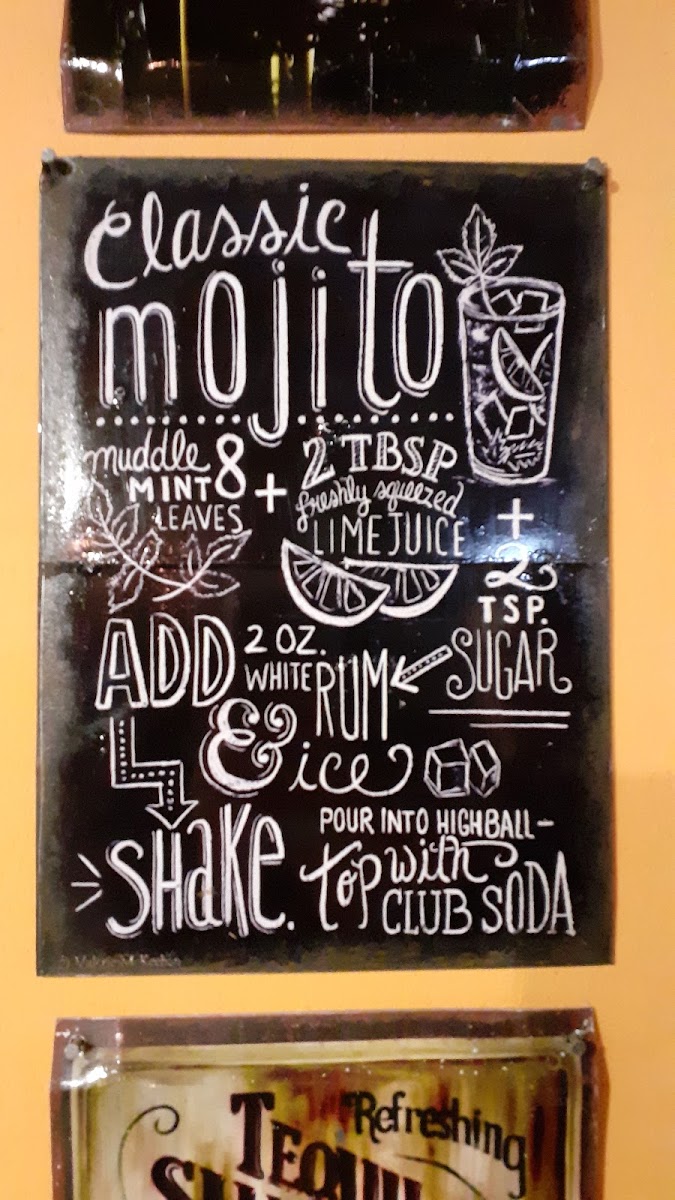 Classic
mojito
muddle 8
MINT
LEAVES
+
2 TBSP
freshly squeezed
LIME JUICE
+
2
TSP.
SUGAR
ADD 2 OZ.
WHITE RUM
& ice
SHaKe.
POUR INTO HIGHBALL-
top with
CLUB SODA
Refreshing